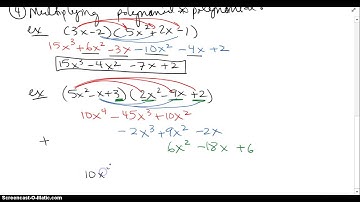 ④ Multiplying polynomial x polynomial:
ex (3x-2)(5x²+2x-1)
15x³+6x²-3x-10x²-4x+2
15x³-4x²-7x+2
ex (5x²-x+3)(2x²-9x+2)
10x⁴-45x³+10x²
-2x³+9x²-2x
+ 6x²-18x+6
10x
Screencast-O-Matic.com